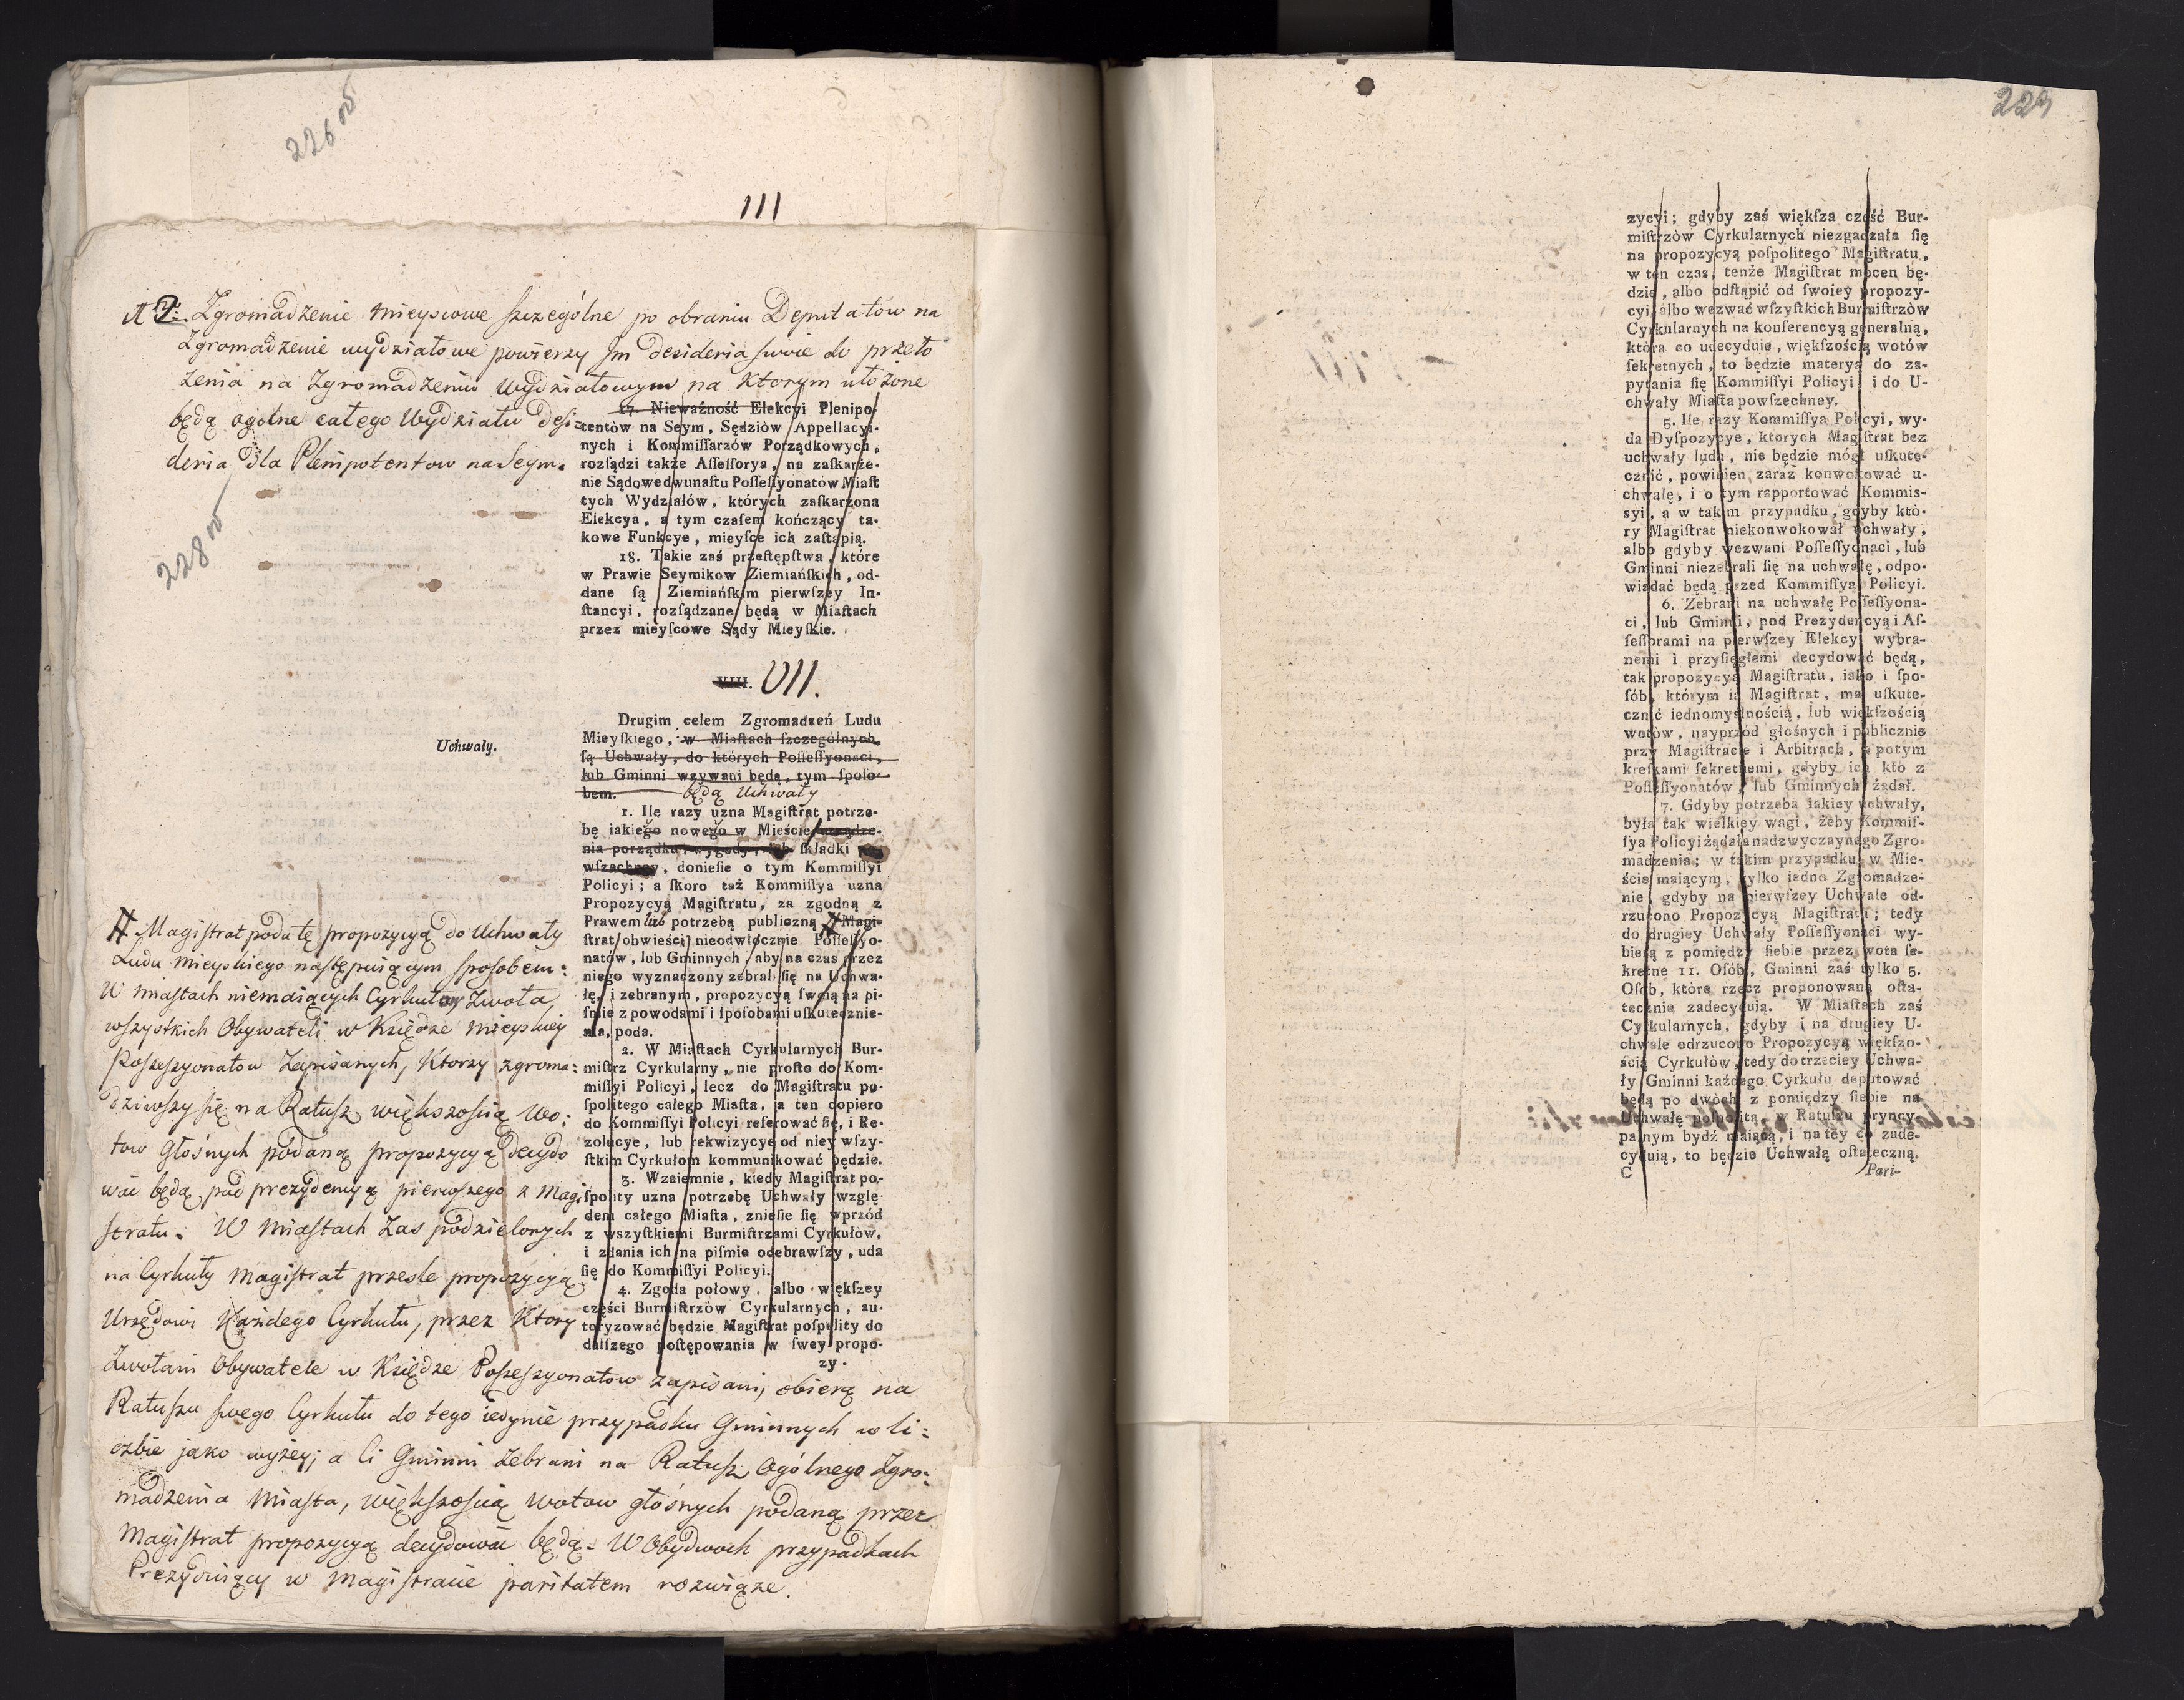 226 v
III
9. Zgromadzenie Mieyscowe szczególne po obraniu Deputatów na
Zgromadzenie wydziałowe powierzy Im desideria swoie do przeło
żenia na Zgromadzeniu Wydziałowym na ktorym ułożone
będą ogólne całego Wydziału desi-
deria dla Plenipotentow na Seym.
228 v
17. Nieważność Elekcyi Plenipo-
tentòw na Seym, Sędziòw Appellacyi-
nych i Kommiſſarzów Porządkowych,
rozſądzi także Aſſeſſorya, na zaſkarże-
nie Sądowe dwunaſtu Poſſeſſyonatów Miaſt
tych Wydziałów, których zaſkarżona
Elekcya, a tym czaſem kończący ta-
kowe Funkcye, mieyſce ich zaſtąpią.
18. Takie zaś przeſtępſtwa, które
w Prawie Seymikow Ziemiańſkich, od-
dane ſą Ziemiańſkim pierwſzey In-
ſtancyi, rozſądzane będą w Miaſtach
przez mieyſcowe Sądy Mieyſkie.
VIII. VII.
Uchwały.
Drugim celem Zgromadzeń Ludu
Mieyſkiego, w Miaſtach ſzczególnych,
ſą Uchwały, do których Poſſeſſyonaci,
lub Gminni wzywani będą, tym ſpoſo-
bem. będą Uchwały
1. Ile razy uzna Magiſtrat potrze-
bę iakiego nowego w Mieście urządze-
nia porządku, wygody, lub ſkładki
wſzechney, donieſie o tym Kommiſſyi
Policyi; a ſkoro taż Kommiſſya uzna
Propozycyą Magiſtratu, za zgodną z
Prawem lub potrzebą publiczną # Magi-
ſtrat obwieści nieodwłocznie Poſſeſſyo-
natów, lub Gminnych, aby na czas przez
niego wyznaczony zebrali ſię na Uchwa-
łę, i zebranym, propozycyą ſwoią na pi-
ſmie z powodami i ſpoſobami uſkutecznie-
nia, poda.
2. W Miaſtach Cyrkularnych Bur-
miſtrz Cyrkularny, nie proſto do Kom-
miſſyi Policyi, lecz do Magiſtratu po-
ſpolitego całego Miaſta, a ten dopiero
do Kommiſſyi Policyi referować ſię, i Re-
zolucye, lub rekwizycye od niey wſzy-
ſtkim Cyrkułom kommunikować będzie.
3. Wzaiemnie, kiedy Magiſtrat po-
ſpolity uzna potrzebę Uchwały wzglę-
dem całego Miaſta, znieſie ſię wprzód
z wszyſtkiemi Burmiſtrzami Cyrkułòw,
i zdania ich na piſmie odebrawſzy, uda
ſię do Kommiſſyi Policyi.
4. Zgoda połowy, albo więkſzey
części Burmiſtrzòw Cyrkularnych, au-
toryzować będzie Magiſtrat poſpolity do
dalſzego poſtępowania w ſwey propo-
zy-
# Magistrat poda tę propozycyą do Uchwały
Ludu Mieyskiego następuiącym sposobem:
W Miastach niemaiących Cyrkułow, Zwoła
wszystkich Obywateli w Księdze Mieyskiey
Possessyonatow zapisanych, ktorzy zgroma:
dziwszy się na Ratusz większością wo:
tow głośnych podaną propozycyą decydo
wać będą pod prezydencyą pierwszego z Magi
stratu. W Miastach zas podzielonych
na Cyrkuły Magistrat przesle propozycyą
Urzędowi każdego Cyrkułu, przez ktory
Zwołani Obywatele w Księdze Possessyonatow zapisani, obierą na
Ratuszu swego Cyrkułu do tego iedynie przypadku Gminnych w li:
czbie jako wyżey; a Ci Gminni Zebrani na Ratusz Ogólnego Zgro:
madzenia Miasta, większością Wotow głośnych podaną przez
Magistrat propozycyą decydować będą. W Obydwoch przypadkach
Prezyduiący w Magistracie paritatem rozwiąże.
229
zycyi; gdyby zaś więkſza część Bur-
miſtrzòw Cyrkularnych niezgadzała ſię
na propozycyą poſpolitego Magiſtratu,
w ten czas, tenże Magiſtrat mocen bę-
dzie, albo odſtąpić od ſwoiey propozy-
cyi, albo wezwać wſzyſtkich Burmiſtrzòw
Cyrkularnych na konferencyą generalną,
która co udecyduie, więkſzością wotów
ſekretnych, to będzie materyą do za-
pytania ſię Kommiſſyi Policyi i do U-
chwały Miaſta powſzechney.
5. Ile razy Kommiſſya Policyi, wy-
da Dyſpozycye, ktorych Magiſtrat bez
uchwały ludu, nie będzie mógł uſkute-
cznić, powinien zaraz konwokować u-
chwałę, i o tym rapportować Kommis-
syi, a w takim przypadku, gdyby któ-
ry Magiſtrat niekonwokował uchwały,
albo gdyby wezwani Poſſeſſyonaci, lub
Gminni niezebrali ſię na uchwałę, odpo-
wiadać będą przed Kommiſſyą Policyi.
6. Zebrani na uchwałę Poſſeſſyona-
ci, lub Gminni, pod Prezydencyą i Aſ-
ſeſſorami na pierwſzey Elekcyi wybra-
nemi i przyſięgłemi decydować będą,
tak propozycyą Magiſtratu, iako i ſpo-
ſób, którym ią Magiſtrat, ma uſkute-
cznić iednomyślnością, lub więkſzością
wotów, nayprzód głośnych i publicznie
przy Magiſtracie i Arbitrach, a potym
kreſkami ſekretnemi, gdyby ich kto z
Poſſeſſyonatów, lub Gminnych żądał.
7. Gdyby potrzeba iakiey uchwały,
była tak wielkiey wagi, żeby Kommiſ-
ſya Policyi żądała nadzwyczaynego Zgro-
madzenia; w takim przypadku, w Mie-
ście maiącym, tylko iedno Zgromadze-
nie, gdyby na pierwſzey Uchwale od-
rzucono Propozycyą Magiſtratu; tedy
do drugiey Uchwały Poſſeſſyonaci wy-
biera z pomiędzy ſiebie przez wota ſe-
kretne 11. Oſób, Gminni zaś tylko 5.
Oſób, które rzecz proponowaną oſta-
tecznie zadecyduią. W Miaſtach zaś
Cyrkularnych, gdyby i na drugiey U-
chwale odrzucono Propozycyą więkſzo-
ścią Cyrkułòw, tedy do trzeciey Uchwa-
ły Gminni każdego Cyrkułu deputować
będą po dwóch z pomiędzy ſiebie na
Uchwałę poſpolitą, w Ratuſzu pryncy-
palnym bydź maiącą, i na tey co zade-
cyduią, to będzie Uchwałą oſtateczną.
C Pari-